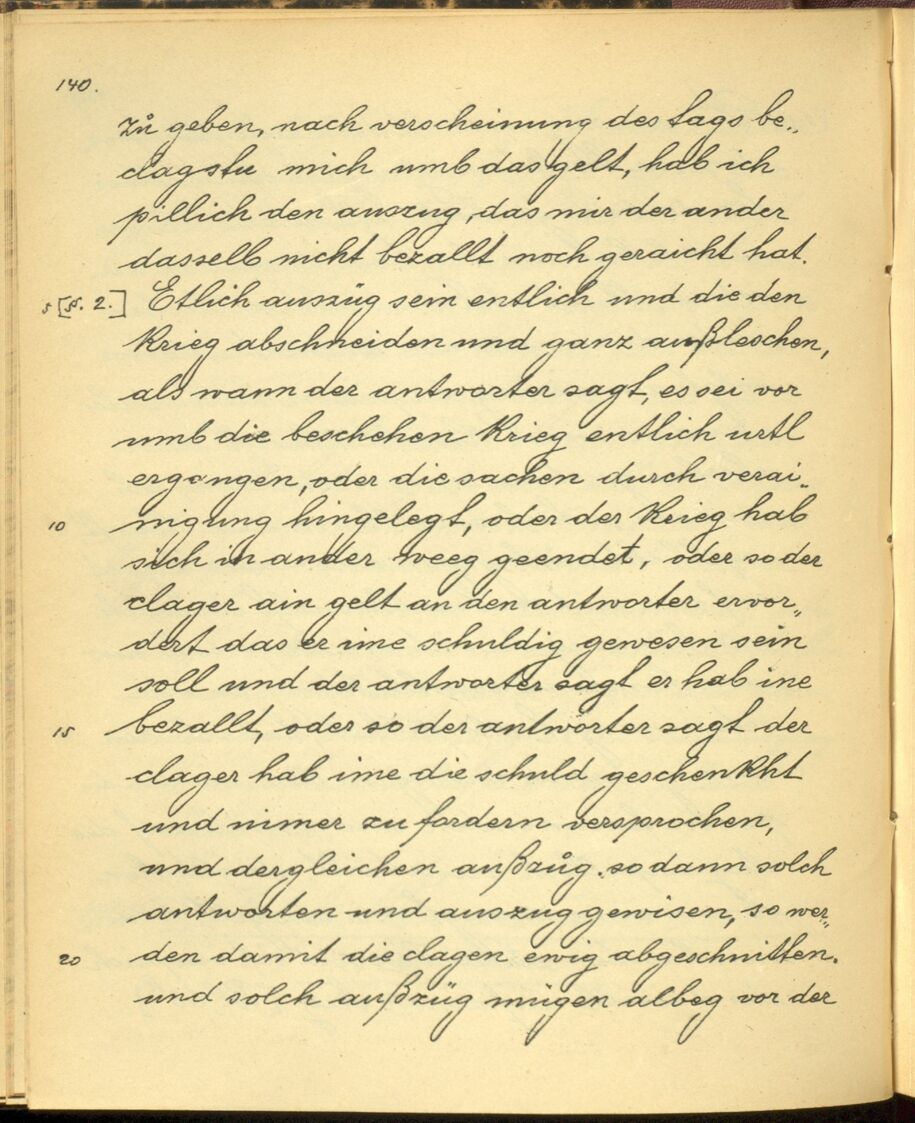 140.
zů geben, nach verscheinung des tags be„
clagstu mich umb das gelt, hab ich
pillich den auszug, das mir der ander
dasselb nicht bezallt noch geraicht hat.
5 [§. 2.] Etlich auszüg sein entlich und die den
krieg abschneiden und ganz außleschen,
als wann der antworter sagt, es sei vor
umb die beschehen krieg entlich urtl
ergangen, oder die sachen durch verai„
10 nigung hingelegt, oder der krieg hab
sich in ander weeg geendet, oder so der
clager ain gelt an den antworter ervor„
dert das er ime schuldig gewesen sein
soll und der antworter sagt er hab ine
15 bezallt, oder so der antworter sagt der
clager hab ime die schuld geschenkht
und nimer zu fordern versprochen,
und dergleichen außzůg. so dann solch
antworten und auszug gewisen, so wer„
20 den damit die clagen ewig abgeschnitten.
und solch außzüg mügen albeg vor der